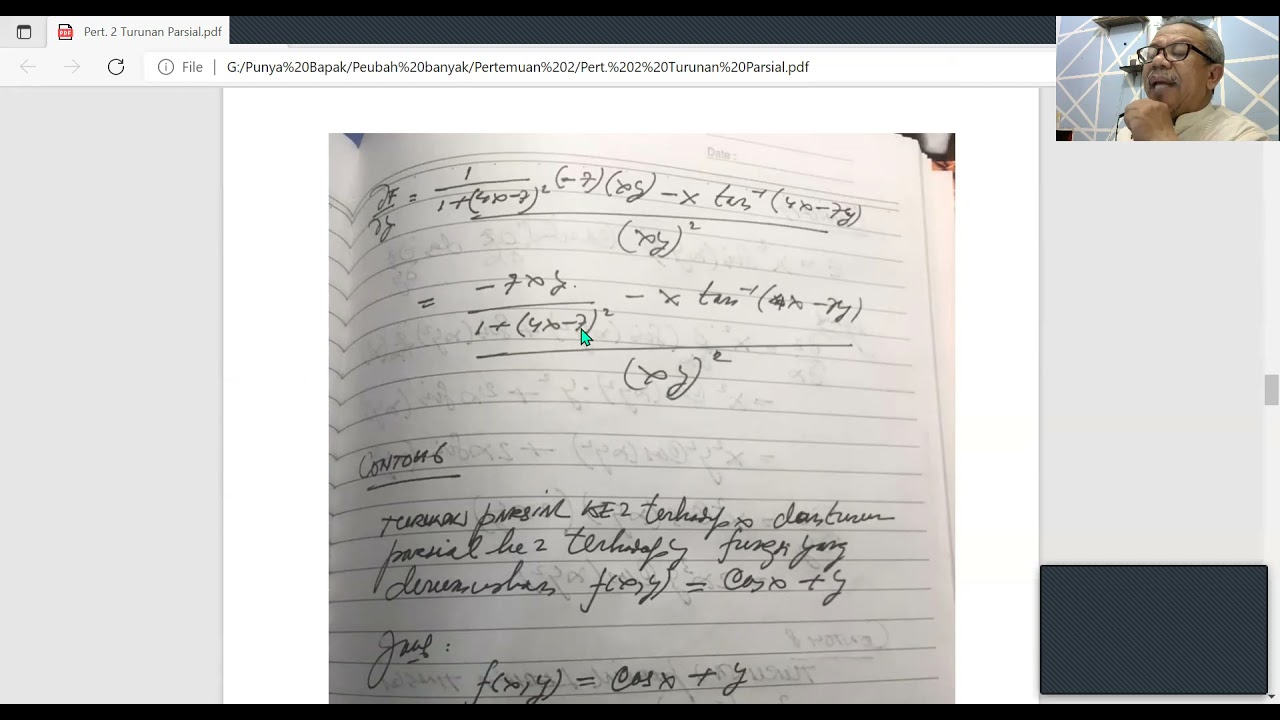 Pert. 2 Turunan Parsial.pdf
File | G:/Punya%20Bapak/Peubah%20banyak/Pertemuan%202/Pert.%202%20Turunan%20Parsial.pdf
Date :
∂f/∂y = (1/(1+(4x-7)²) (-7)(xy) - x tan⁻¹(4x-7y)) / (xy)²
= (-7xy/(1+(4x-7)²) - x tan⁻¹(4x-7y)) / (xy)²
CONTOH 6
TURUNAN PARSIAL KE 2 terhadap x dan turunan
parsial ke 2 terhadap y fungsi yang
dirumuskan f(x,y) = Cos x + y
Jawab :
f(x,y) = Cos x + y